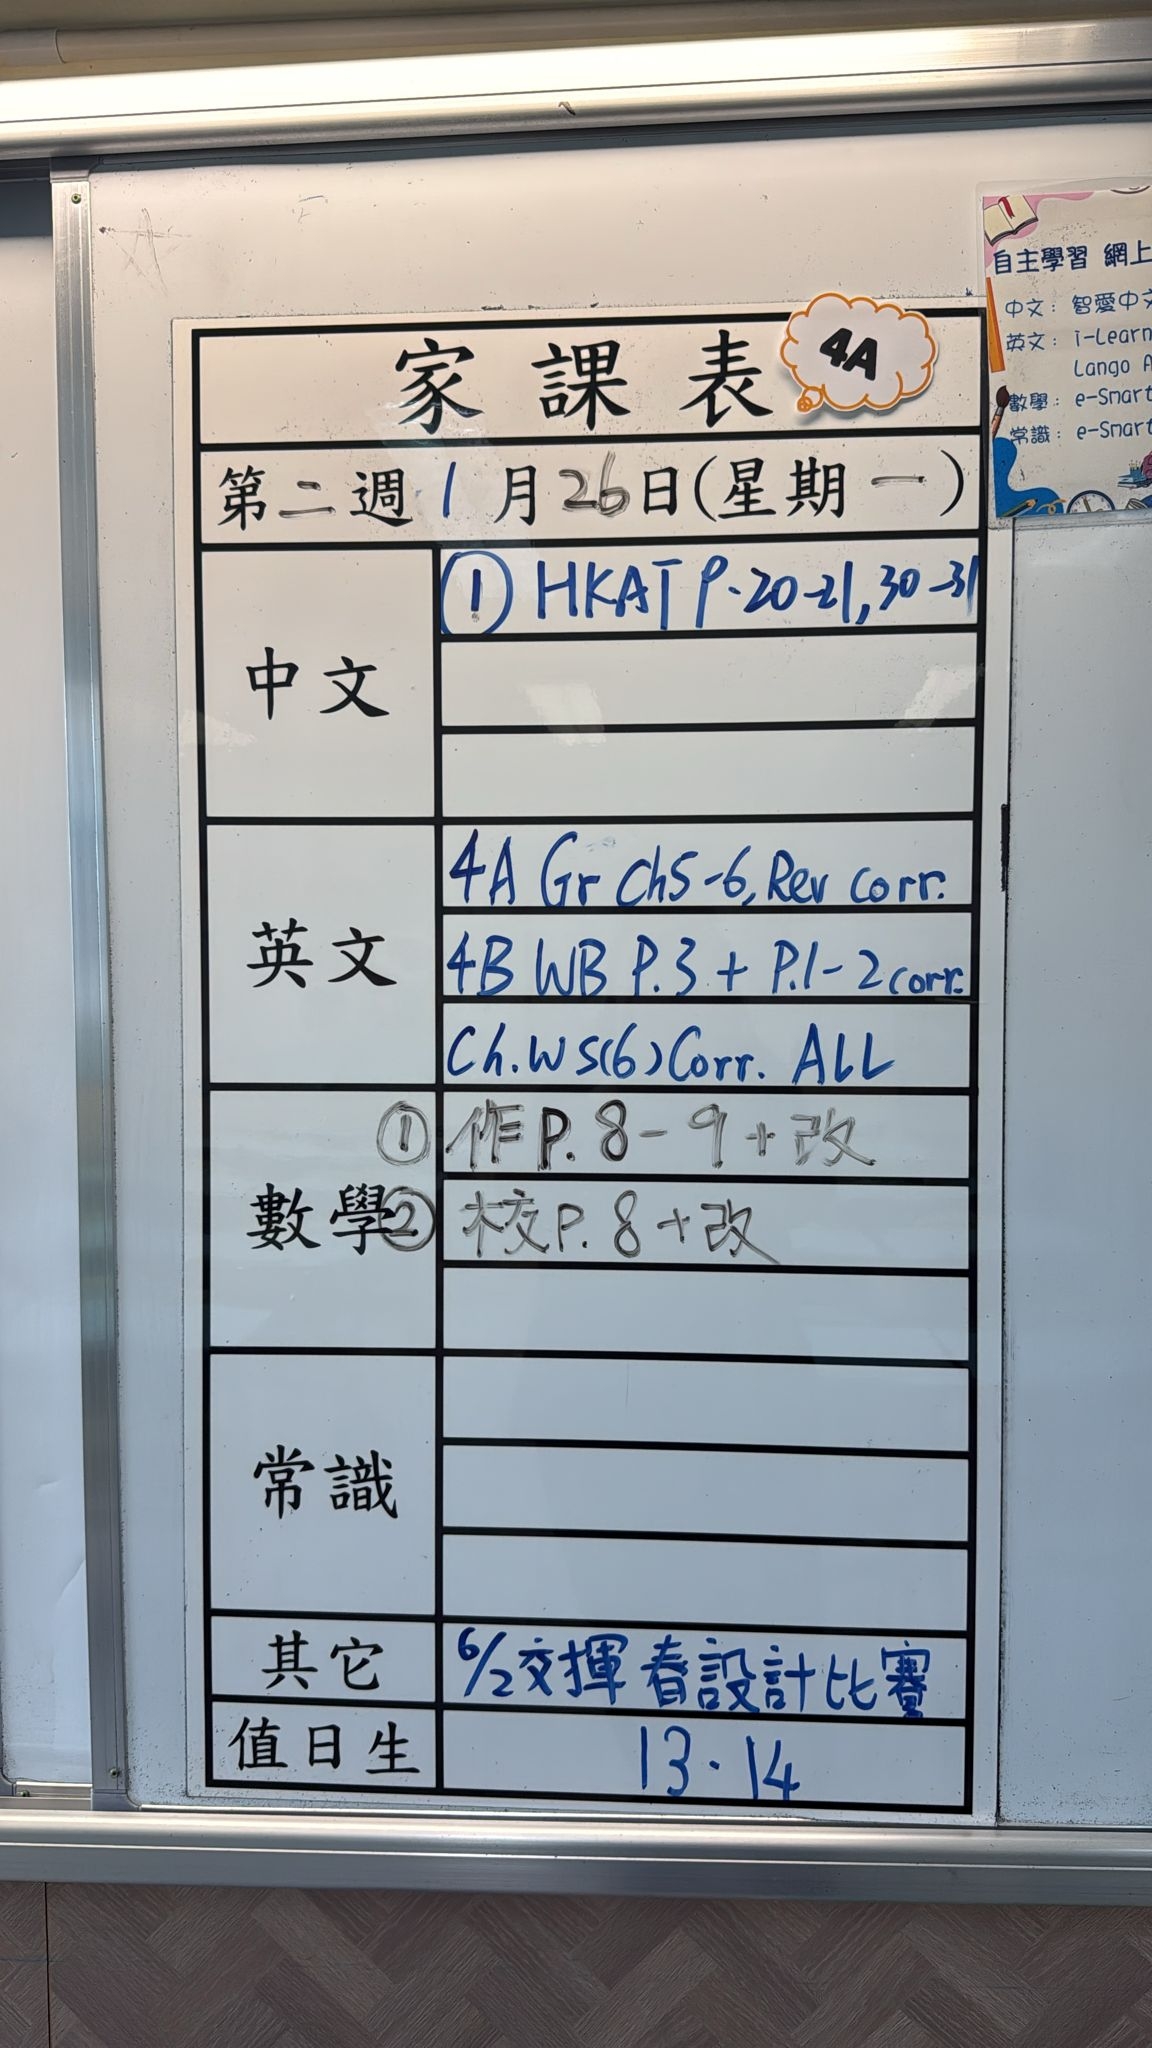 自主學習 網上
中文：智愛中文
英文：i-Learn
Lango A
數學：e-Smart
常識：e-Smart
家課表 4A
第二週 1月26日(星期一)
中文
① HKAT P.20-21, 30-31
英文
4A Gr Ch5-6, Rev corr.
4B WB P.3 + P.1-2 corr.
Ch.WS(6) Corr. ALL
數學
① 作P.8-9+改
② 校P.8+改
常識
其它 6/2交揮春設計比賽
值日生 13.14